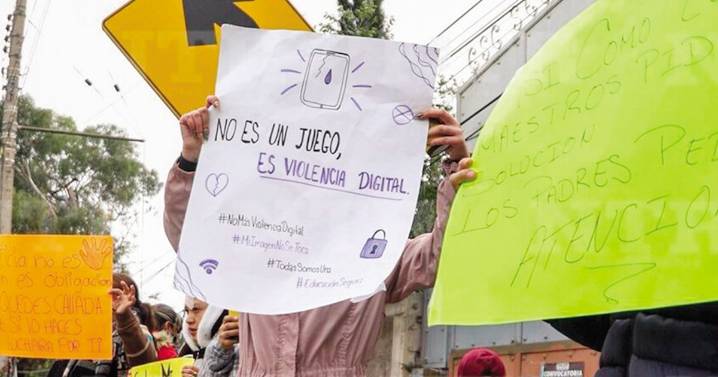 NO ES UN JUEGO,
ES VIOLENCIA DIGITAL.
#NoMásViolenciaDigital
#MiImagenNoSeToca
#TodasSomosUna
#EducaciónSegura
SI COMO
MAESTROS PID
SOLUCION
LOS PADRES
ATENCIO
no es
es obligación
QUEDES CALLADA
SI NO HACES
LUCHARA POR TI
CONVOCATORIA